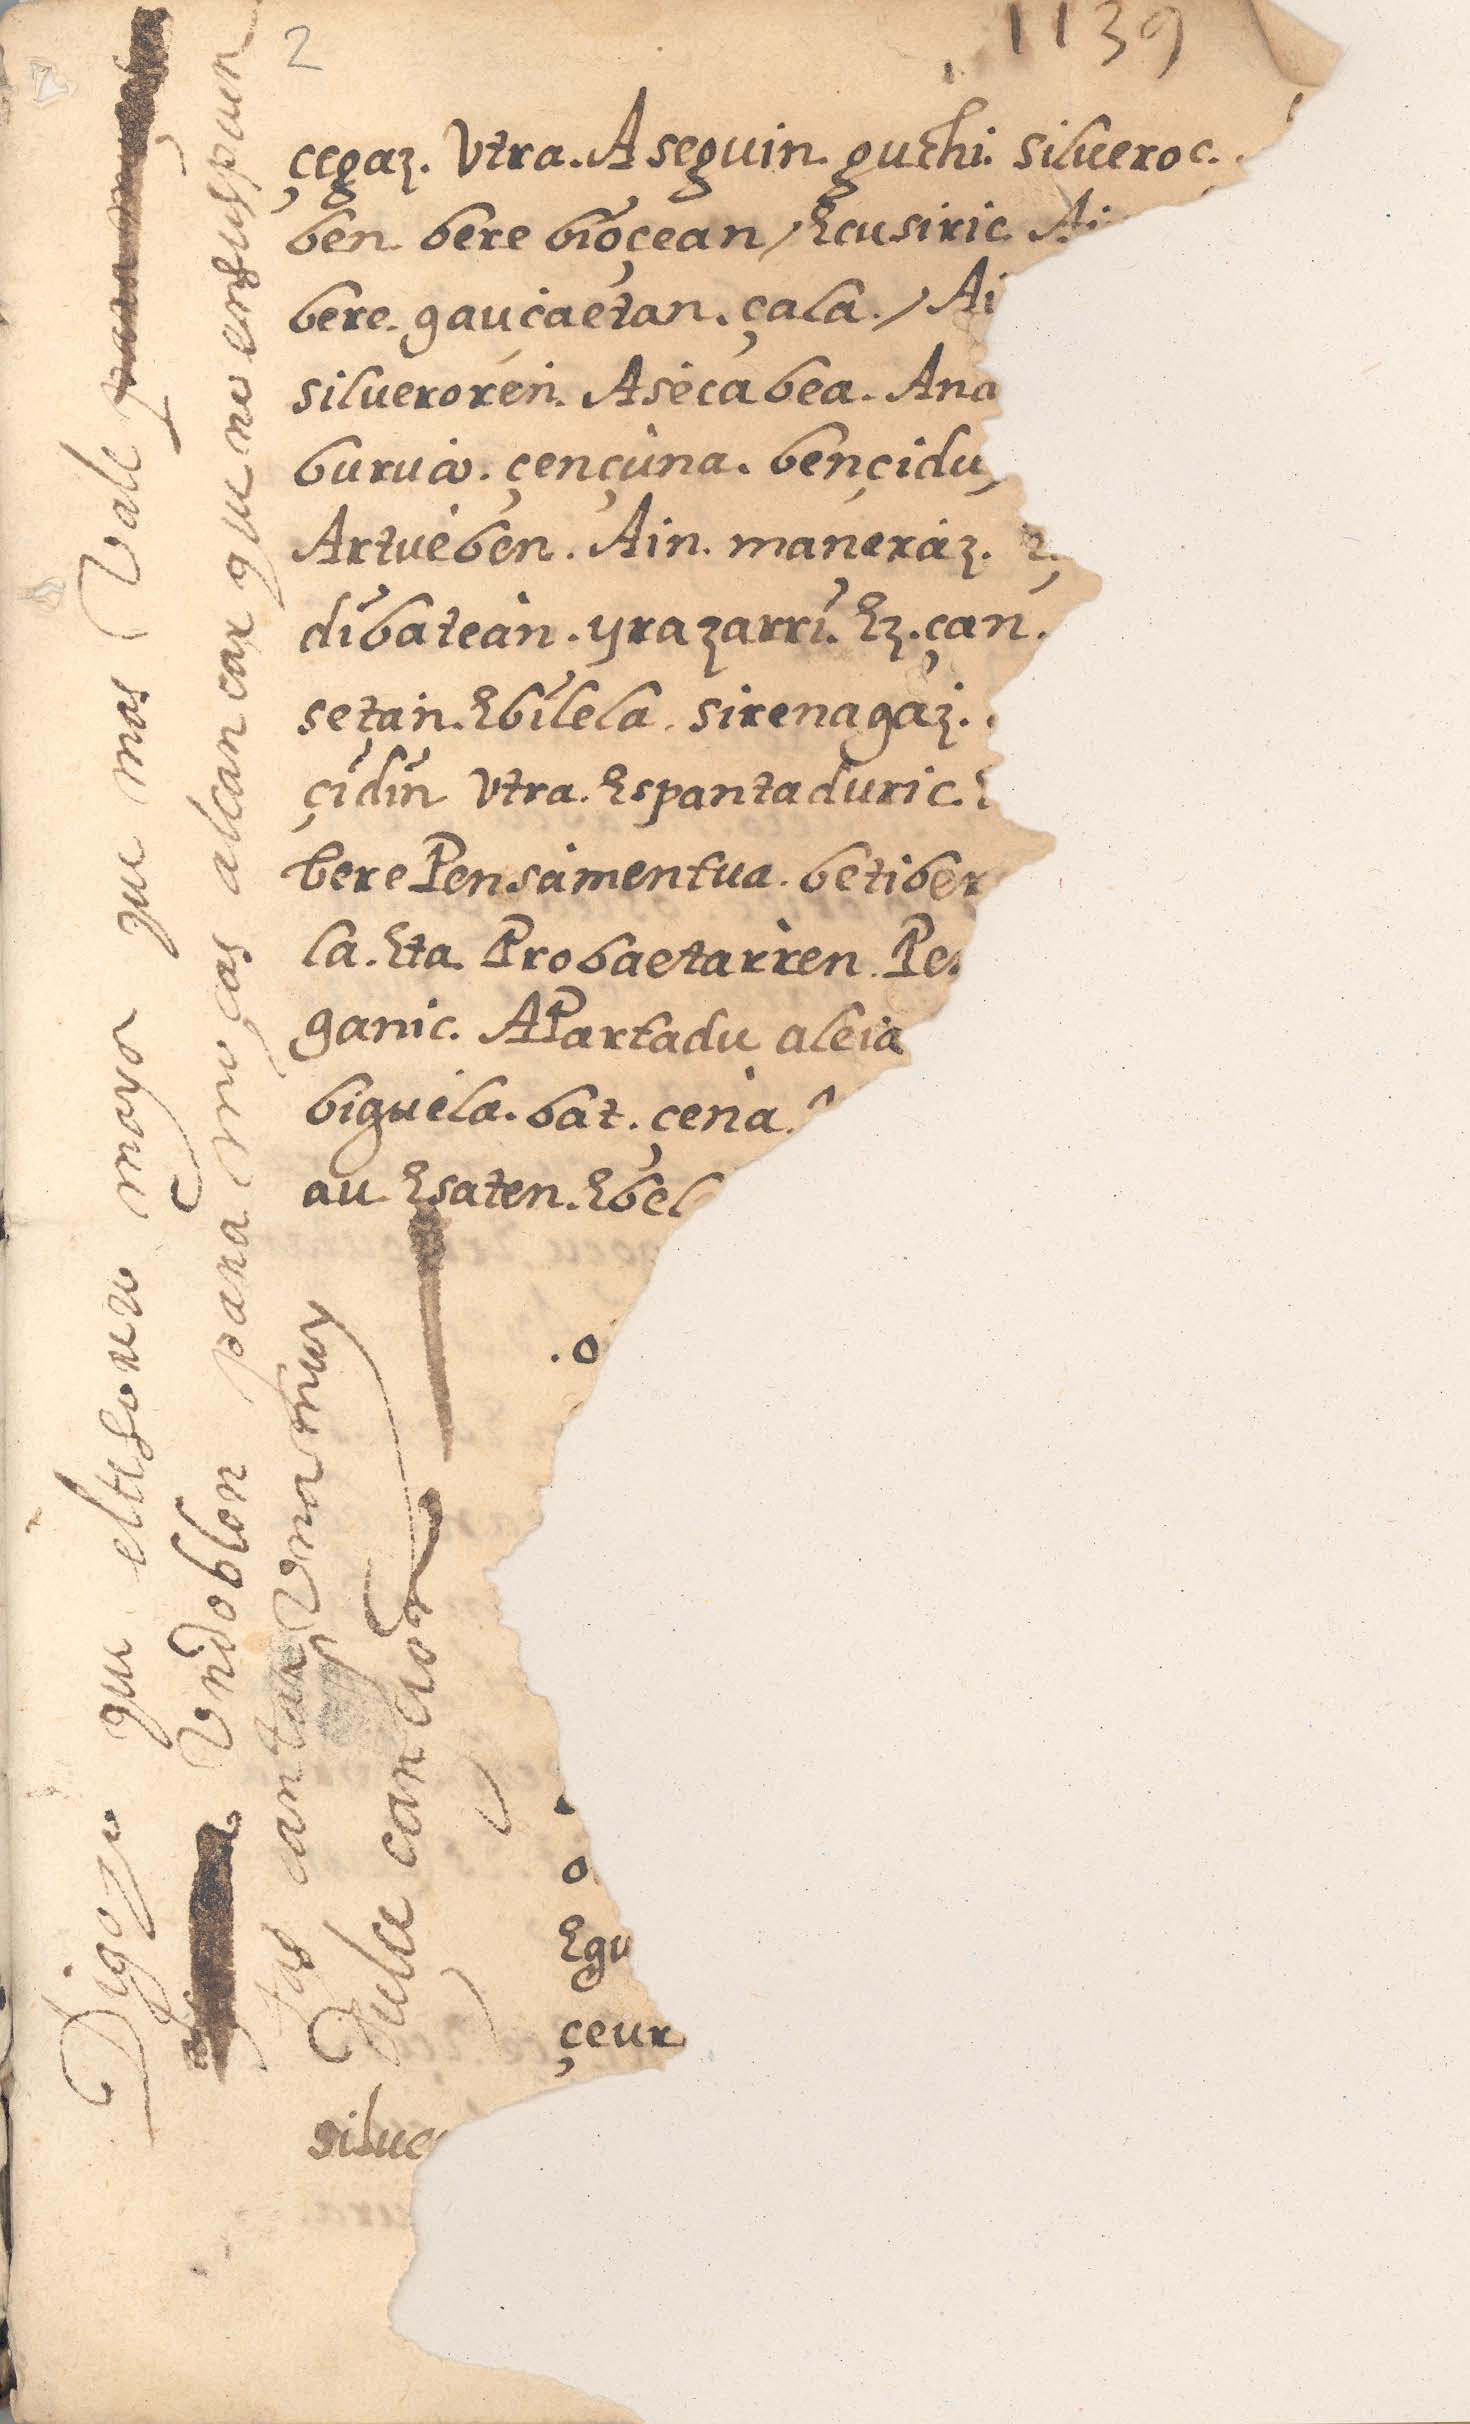 2
1139
çegaz. Vtra. Aseguin. guthi. silueroc.
ben bere bioçean, Ecusiric. Ai
bere. gauçaetan. çala., Ai
silueroren. Asecabea. Ana
burua. çençuna. bençidu
Artueben. Ain. maneraz.
dibatean. yrazarri. Ez. çan.
setan. Ebilela. sirenagaz.
çidin Vtra. Espantaduric.
bere Pensamentua. betiber
la. Eta. Probaetarren. Pe
ganic. APartadu aleia
biguela. bat. çena.
au Esaten. Ebel
. o
o
Egu
çeur
silue
Digo yo que eltesouro mayor que mas Vale
Vndoblon para moças alcancar que no ensuspain
tas cantar Vna muy
Dulce cancion